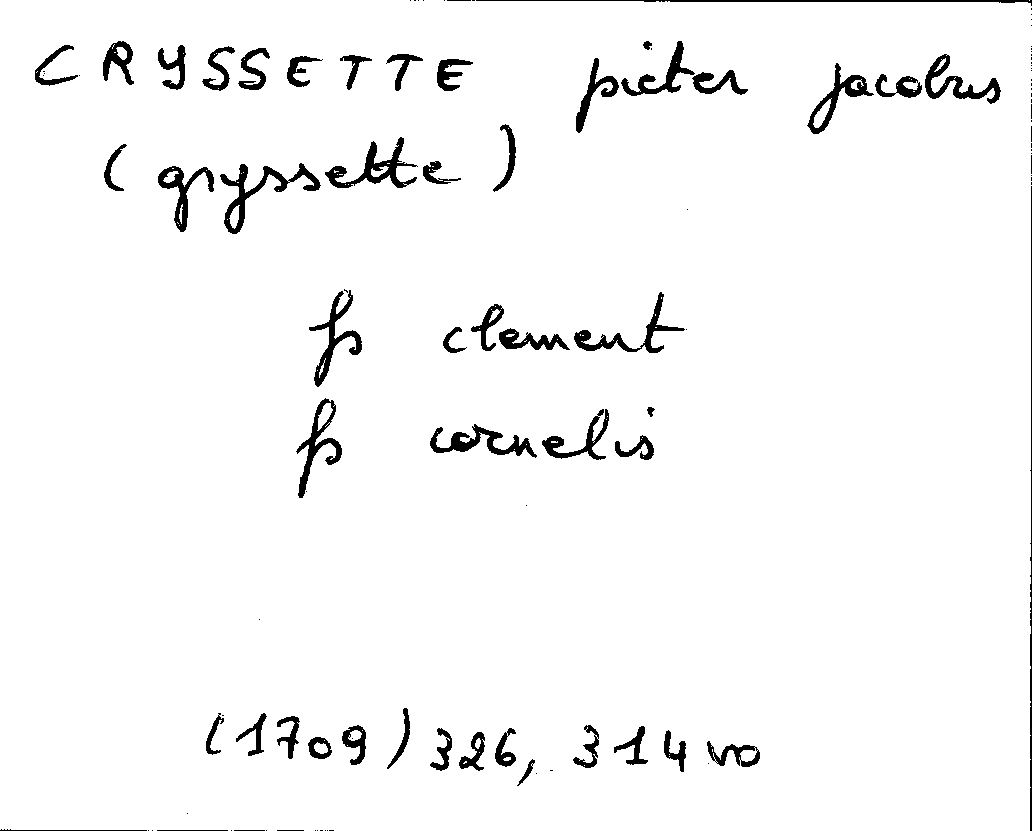 CRYSSETTE pieter jacobus
(gryssette)
fs clement
fs cornelis
(1709) 326, 314 vo